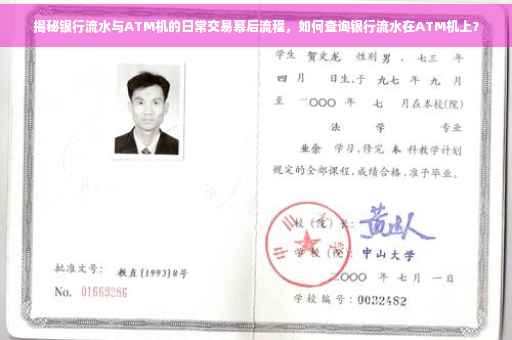 揭秘银行流水与ATM机的日常交易幕后流程，如何查询银行流水在ATM机上？
学生 贺文龙 性别 男 ，七三 年
四 月 日生，于 九七 年 九 月
至 二〇〇〇 年 七 月在本校(院)
法 学 专业
业余 学习，修完 本 科教学计划
规定的全部课程，成绩合格，准予毕业。
校(院)长：
学 校(院)：中山大学
二〇〇〇 年 七 月 一 日
批准文号： 教直[1993]8号
No. 01669286
学校编号：0032482